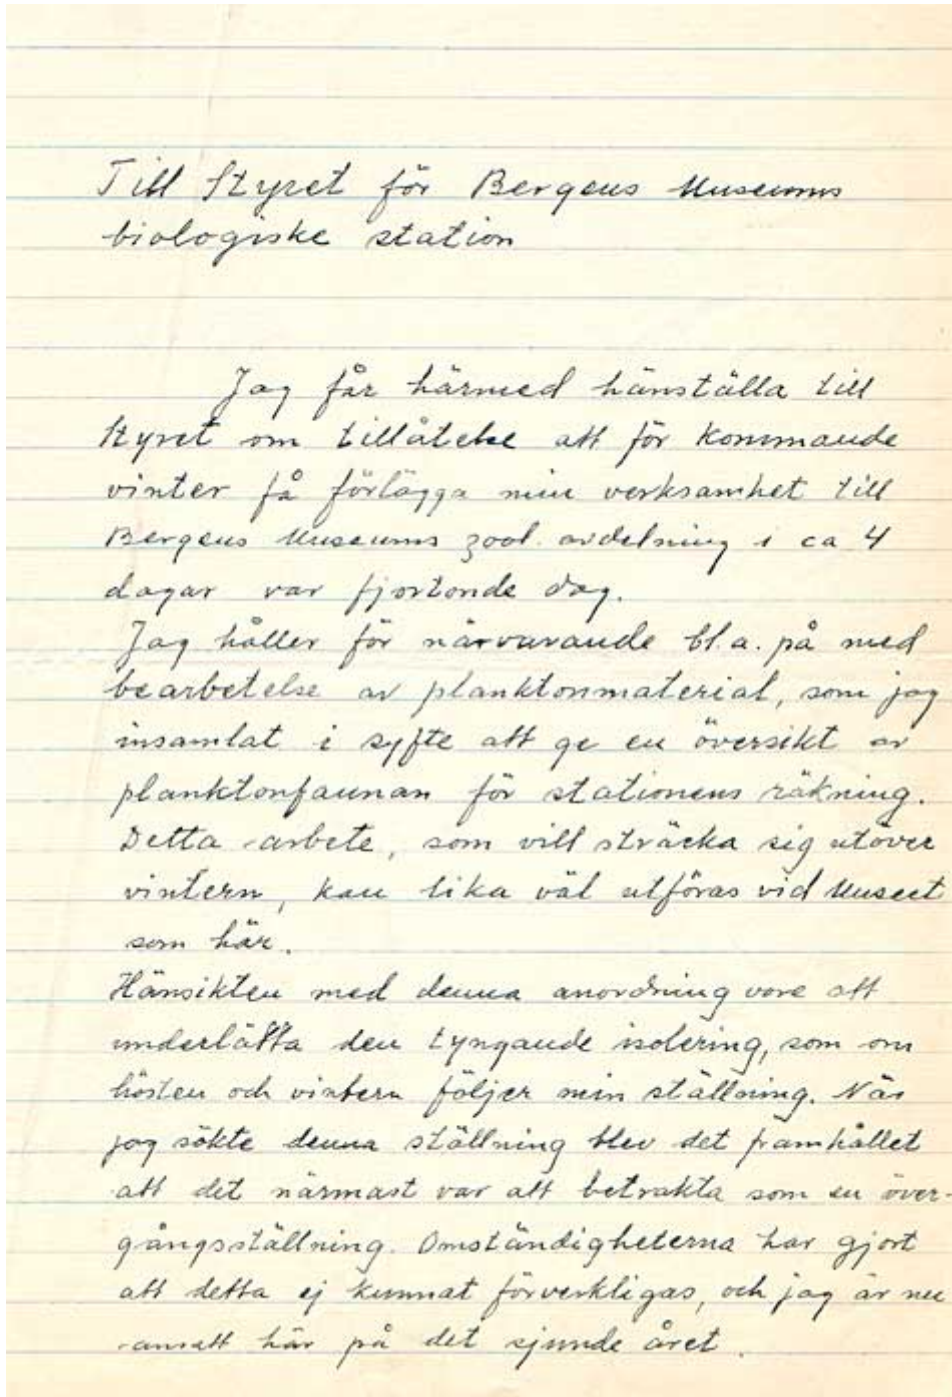 Till Styret för Bergens Museums
biologiske station
Jag får härmed hänställa till
Styret om tillåtelse att för kommande
vinter få förlägga min verksamhet till
Bergens Museums zool. avdelning i ca 4
dagar var fjortonde dag.
Jag håller för närvarande bl.a. på med
bearbetelse av planktonmaterial, som jag
insamlat i syfte att ge en översikt av
planktonfaunan för stationens räkning.
Detta arbete, som vill sträcka sig utöver
vintern, kan lika väl utföras vid Museet
som här.
Hänsikten med denna anordning vore att
underlätta den tyngande isolering, som om
hösten och vintern följer min ställning. När
jag sökte denna ställning blev det framhållet
att det närmast var att betrakta som en över-
gångsställning. Omständigheterna har gjort
att detta ej kunnat förverkligas, och jag är nu
ansatt här på det sjunde året.